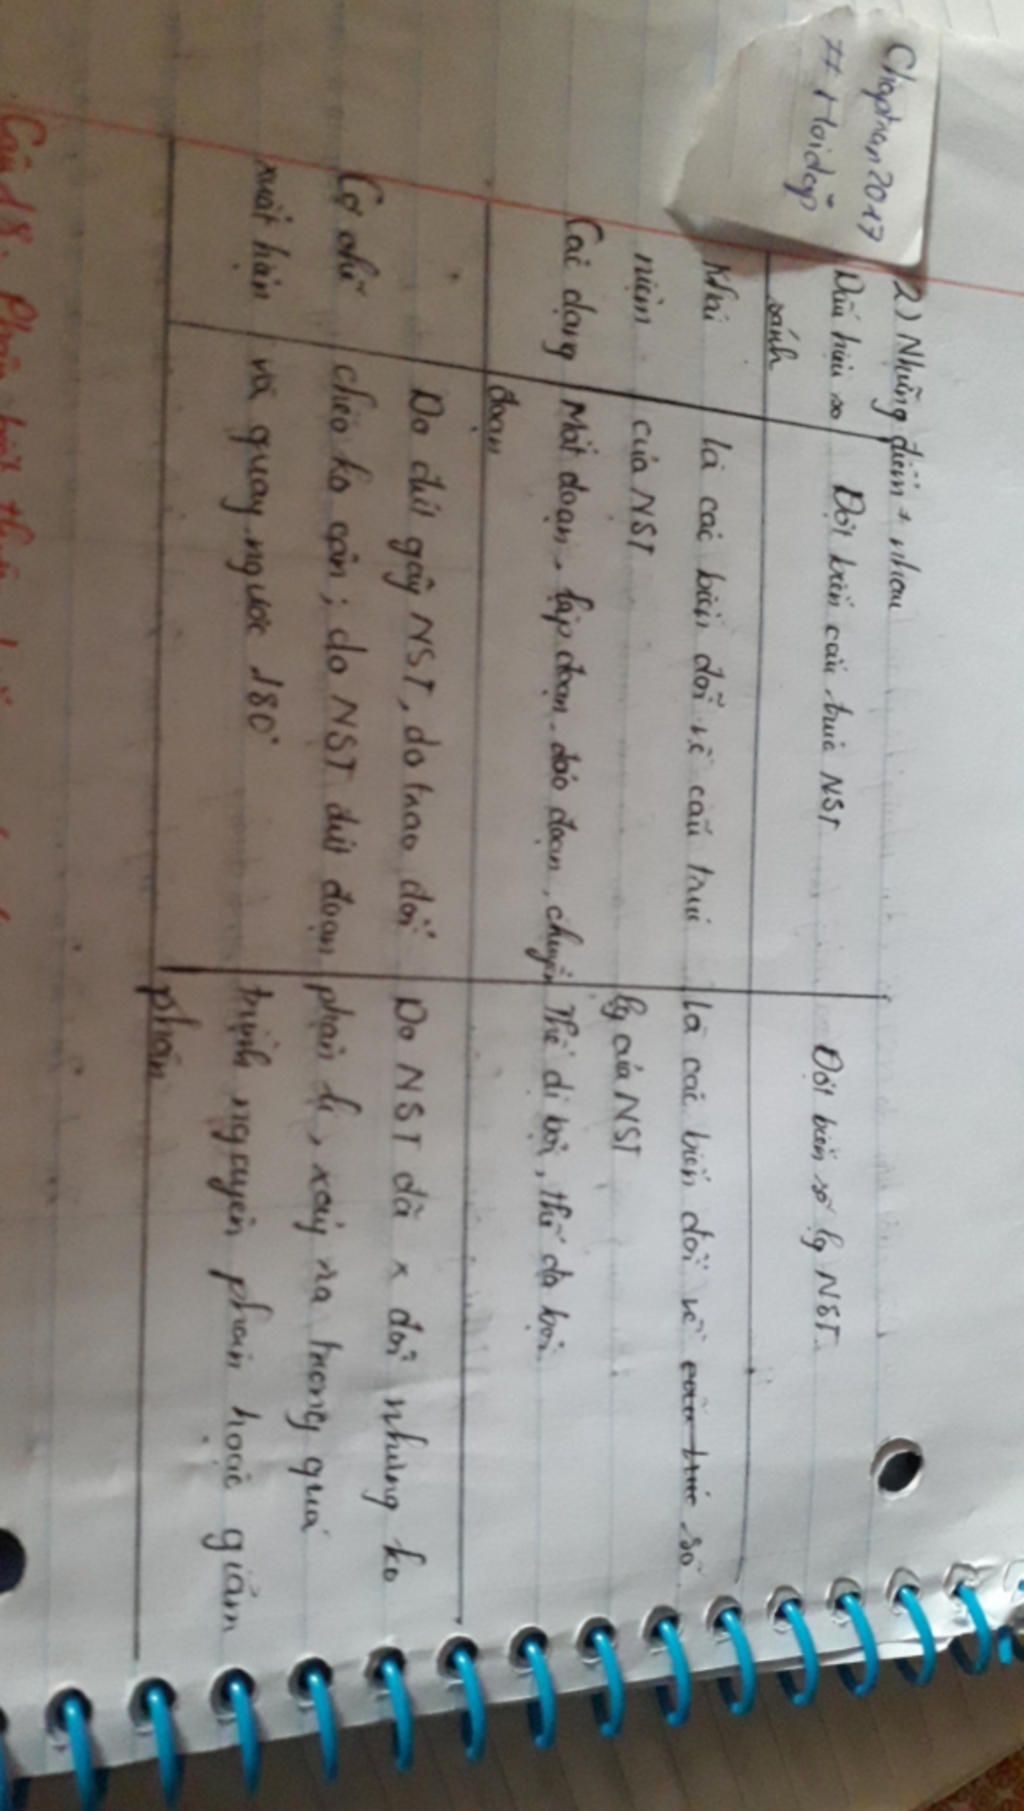 Chaptran2017
# Hoidap
2) Những điểm ≠ nhau
Dấu hiệu so sánh
Đột biến cấu trúc NST
Đột biến số lg NST.
Khái niệm
là các biến đổi về cấu trúc
của NST
là các biến đổi về cấu trúc số
lg của NST
Các dạng
Mất đoạn, lặp đoạn, đảo đoạn, chuyển
đoạn
Thể dị bội, thể đa bội.
Cơ chế
xuất hiện
Do đứt gãy NST, do trao đổi
chéo ko cân; do NST đứt đoạn
và quay ngược 180°
Do NST đã x đôi nhưng ko
phân li, xảy ra trong quá
trình nguyên phân hoặc giảm
phân
Câu 18: Phân biệt